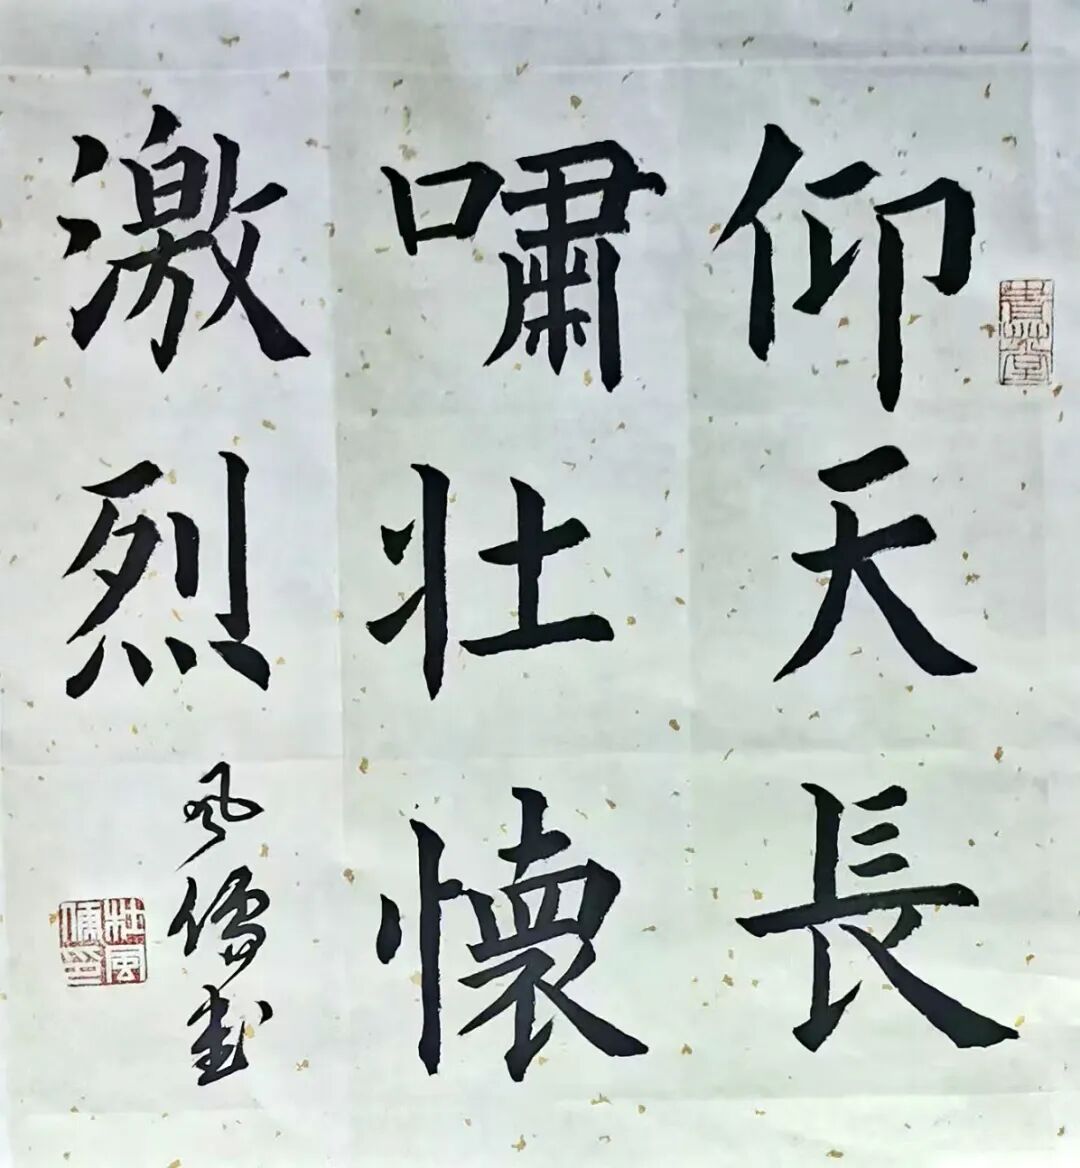 仰天長
嘯壯懷
激烈
风儒书